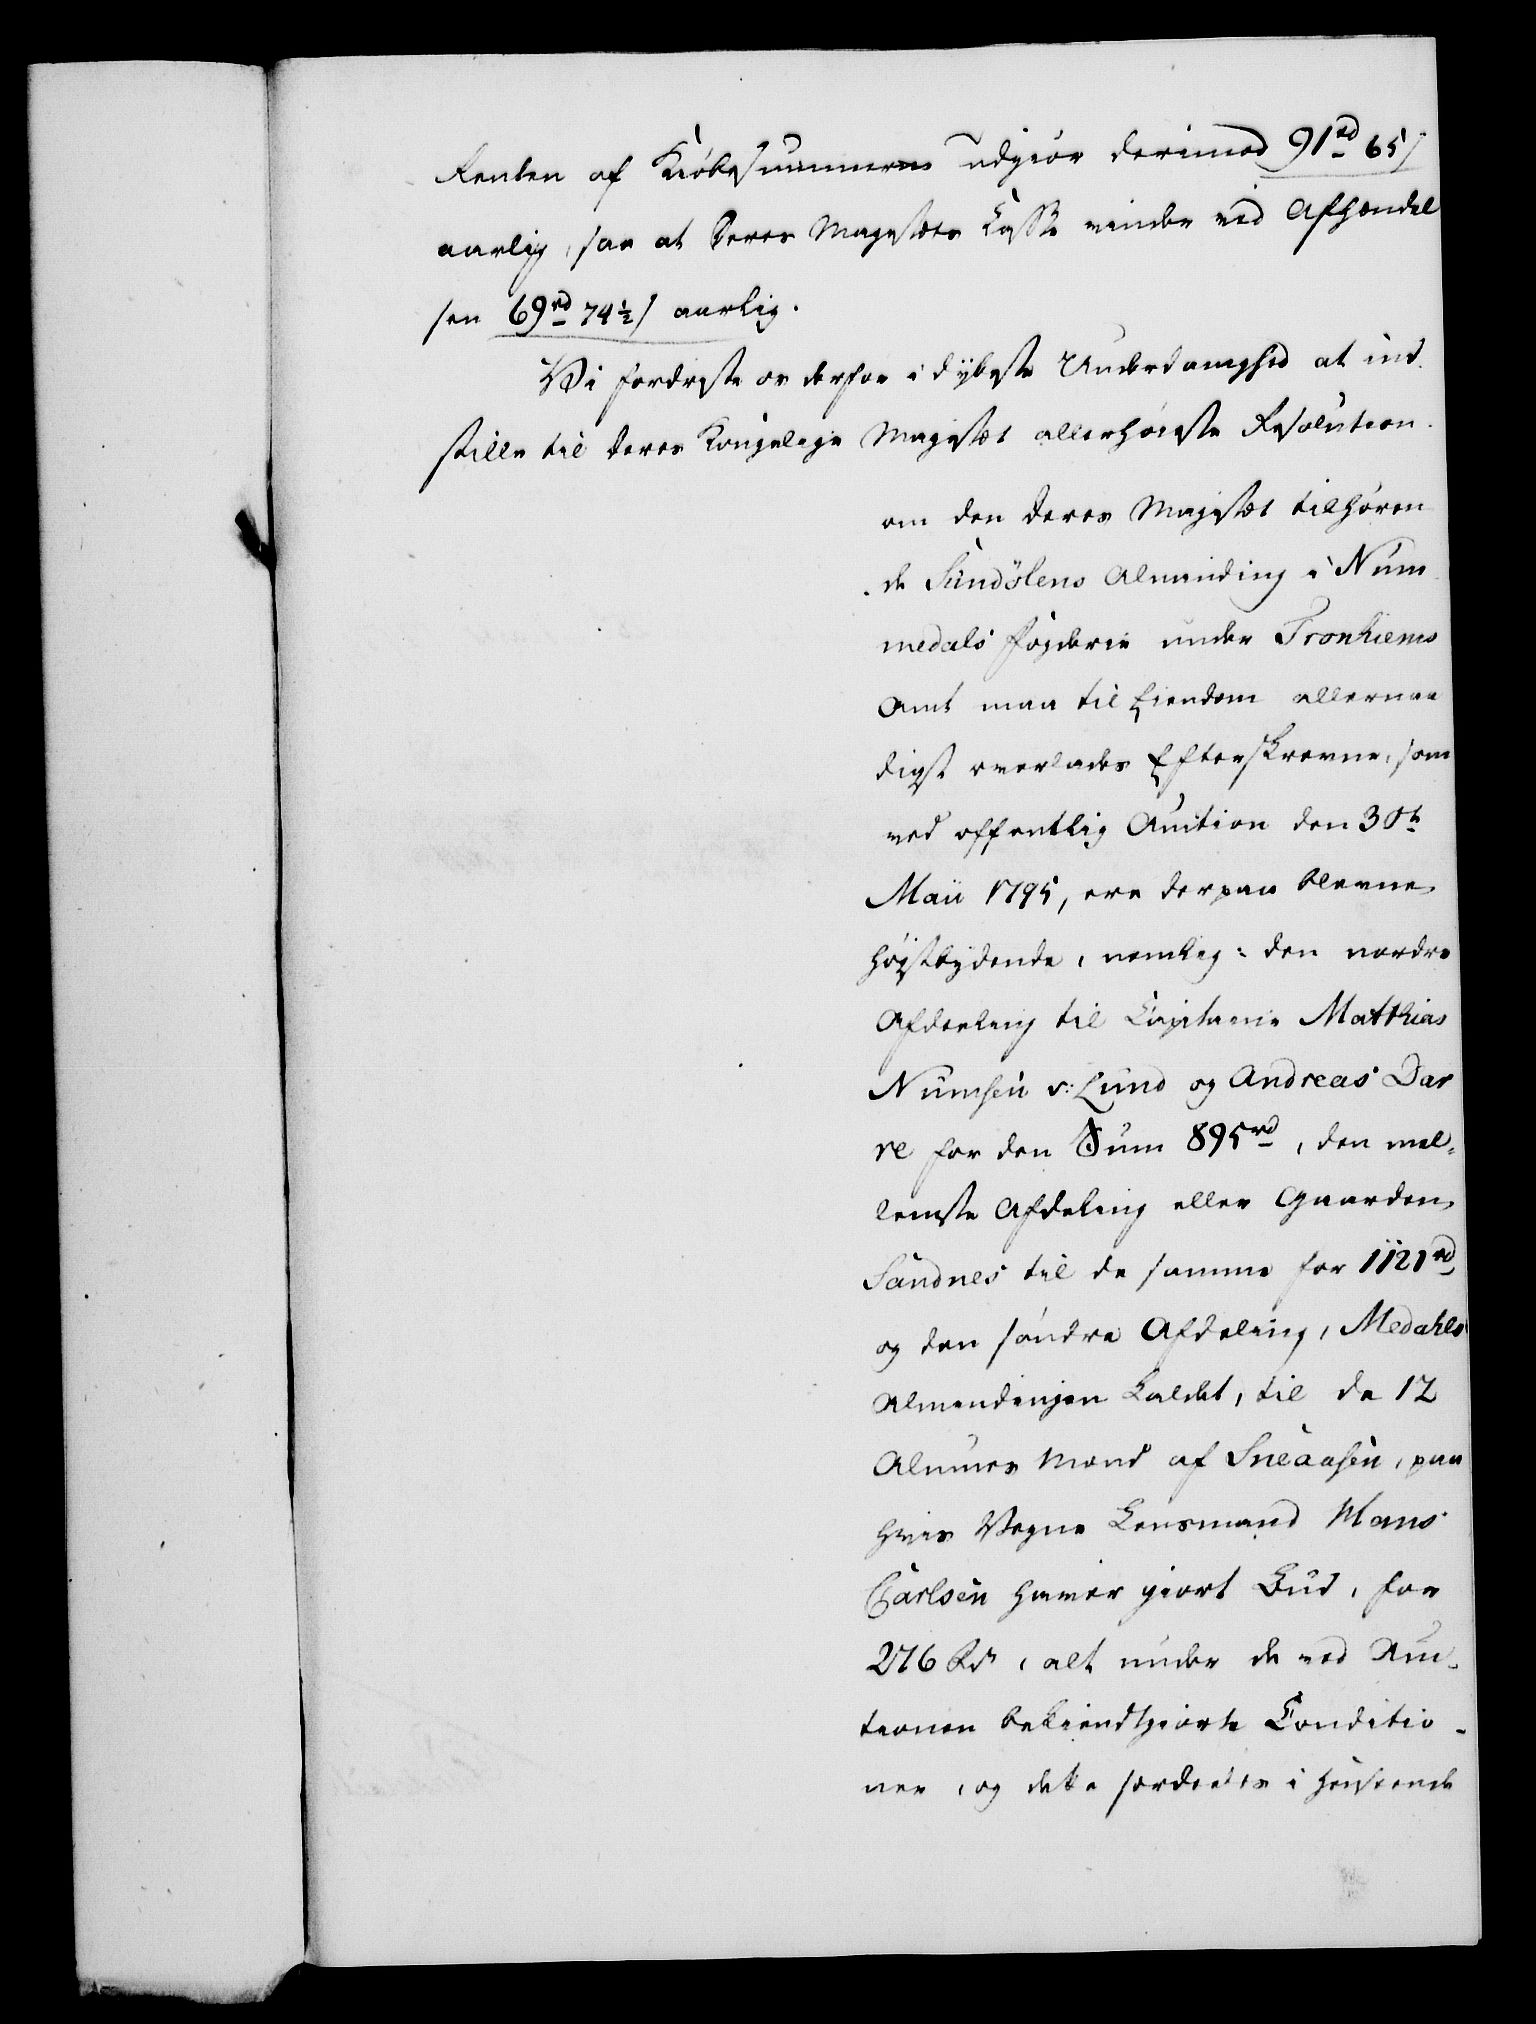 Renten af Kiøbesummerne udgiør derimod 91rd 65s
aarlig, saa at Deres Majestæts Casse vinder ved Afhændel
sen 69rd 74½s aarlig.
Vi fordriste os derfor i dybeste Underdanighed at ind
stille til Deres Kongelige Majestæt allerhøieste Resolution.
om den Deres Majestæt tilhøren
de Sandølens Alminding i Num
medals Fogderie under Tronhiems
Amt maa til Eiendom allernaa
digst overlades Efterskrevne, som
ved offentlig Auction den 30te
Maii 1795, ere derpaa blevne
høistbydende, nemlig: den nordre
Afdeeling til Capitaine Matthias
Numsen v: Lund og Andreas Dar
re for den Sum 895rd, den mel-
lemste Afdeling eller Gaarden
Sandnes til de samme for 1121rd,
og den søndre Afdeling, Medahls
Almendingen kaldet, til de 12
Almues Mænd af Sneaasen, paa
hvis Vegne Lensmand Mons
Carlsen haver giort Bud, for
276 Rd, alt under de ved Auc-
tionen bekiendtgiorte Conditio-
ner, og dette særdeeles i Henseende